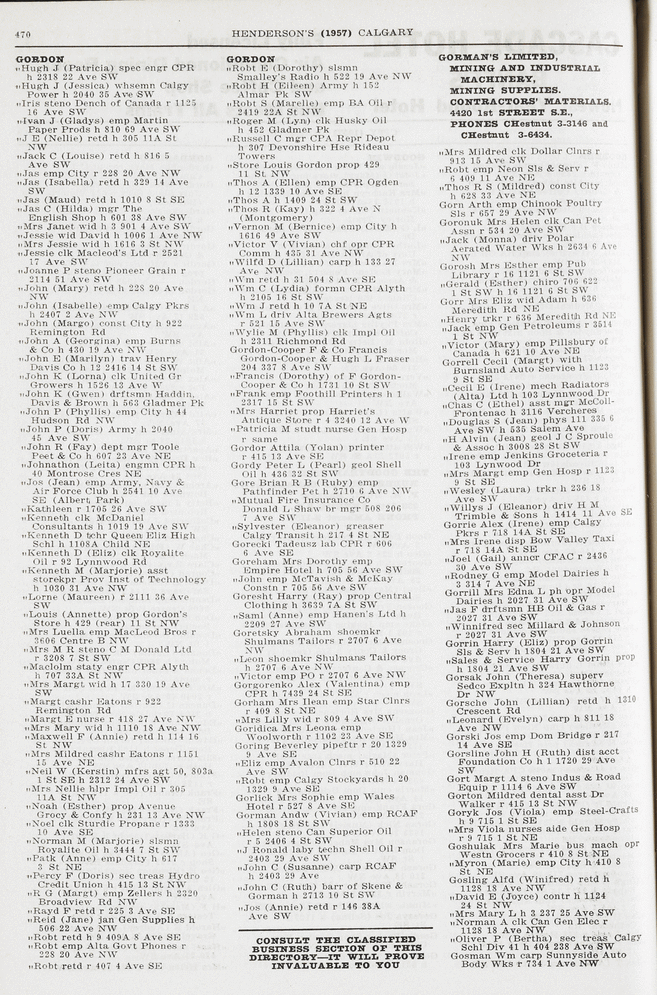 470
HENDERSON'S (1957) CALGARY
GORDON
"Hugh J (Patricia) spec engr CPR
h 2318 22 Ave SW
"Hugh J (Jessica) whsemn Calgy
Power h 2040 35 Ave SW
"Iris steno Dench of Canada r 1125
16 Ave SW
"Ivan J (Gladys) emp Martin
Paper Prods h 810 69 Ave SW
"J E (Nellie) retd h 305 11A St
NW
"Jack C (Louise) retd h 816 5
Ave SW
"Jas emp City r 228 20 Ave NW
"Jas (Isabella) retd h 329 14 Ave
SW
"Jas (Maud) retd h 1010 8 St SE
"Jas C (Hilda) mgr The
English Shop h 601 38 Ave SW
"Mrs Janet wid h 3 901 4 Ave SW
"Jessie wid David h 1006 1 Ave NW
"Mrs Jessie wid h 1616 3 St NW
"Jessie clk Macleod's Ltd r 2521
17 Ave SW
"Joanne P steno Pioneer Grain r
2114 51 Ave SW
"John (Mary) retd h 228 20 Ave
NW
"John (Isabelle) emp Calgy Pkrs
h 2407 2 Ave NW
"John (Margo) const City h 922
Remington Rd
"John A (Georgina) emp Burns
& Co h 430 19 Ave NW
"John E (Marilyn) trav Henry
Davis Co h 12 2416 14 St SW
"John K (Lorna) clk United Gr
Growers h 1526 13 Ave W
"John K (Gwen) drftsmn Haddin,
Davis & Brown h 563 Gladmer Pk
"John P (Phyllis) emp City h 44
Hudson Rd NW
"John P (Doris) Army h 2040
45 Ave SW
"John R (Fay) dept mgr Toole
Peet & Co h 607 23 Ave NE
"Johnathon (Leita) engmn CPR h
40 Montrose Cres NE
"Jos (Jean) emp Army, Navy &
Air Force Club h 2541 10 Ave
SE (Albert Park)
"Kathleen r 1705 26 Ave SW
"Kenneth clk McDaniel
Consultants h 1019 19 Ave SW
"Kenneth D tchr Queen Eliz High
Schl h 1108A Child NE
"Kenneth D (Eliz) clk Royalite
Oil r 92 Lynnwood Rd
"Kenneth M (Marjorie) asst
storekpr Prov Inst of Technology
h 1030 31 Ave NW
"Lorne (Maureen) r 2111 36 Ave
SW
"Louis (Annette) prop Gordon's
Store h 429 (rear) 11 St NW
"Mrs Luella emp MacLeod Bros r
3606 Centre B NW
"Mrs M R steno C M Donald Ltd
r 3208 7 St SW
"Maclolm staty engr CPR Alyth
h 707 33A St NW
"Mrs Margt wid h 17 330 19 Ave
SW
"Margt cashr Eatons r 922
Remington Rd
"Margt E nurse r 418 27 Ave NW
"Mrs Mary wid h 1110 18 Ave NW
"Maxwell F (Annie) retd h 114 16
St NW
"Mrs Mildred cashr Eatons r 1151
15 Ave NE
"Neil W (Kerstin) mfrs agt 50, 803a
1 St SE h 2312 24 Ave SW
"Mrs Nellie hlpr Imperial Oil r 305
11A St NW
"Noah (Esther) prop Avenue
Grocy & Confy h 231 13 Ave NW
"Noel clk Sturdie Propane r 1333
10 Ave SE
"Norman M (Marjorie) slsmn
Royalite Oil h 3444 7 St SW
"Patk (Anne) emp City h 617
3 St NE
"Percy F (Doris) sec treas Hydro
Credit Union h 415 13 St NW
"R G (Margt) emp Zellers h 2320
Broadview Rd NW
"Rayd F retd r 225 3 Ave SE
"Reid (Jane) jan Gen Supplies h
506 22 Ave NW
"Robt retd h 9 409A 8 Ave SE
"Robt emp Alta Govt Phones r
228 20 Ave NW
"Robt retd r 407 4 Ave SE
GORDON
"Robt E (Dorothy) slsmn
Smalley's Radio h 522 19 Ave NW
"Robt H (Eileen) Army h 152
Almar Pk SW
"Robt S (Marelie) emp BA Oil r
2419 22A St NW
"Roger M (Lyn) clk Husky Oil
h 452 Gladmer Pk
"Russell C mgr CPA Repr Depot
h 307 Devonshire Hse Rideau
Towers
"Store Louis Gordon prop 429
11 St NW
"Thos A (Ellen) emp CPR Ogden
h 12 1339 10 Ave SE
"Thos A h 1409 24 St SW
"Thos R (Kay) h 322 4 Ave N
(Montgomery)
"Vernon M (Bernice) emp City h
1616 49 Ave SW
"Victor V (Vivian) chf opr CPR
Comm h 435 31 Ave NW
"Wilfd D (Lillian) carp h 133 27
Ave NW
"Wm retd h 31 504 8 Ave SE
"Wm C (Lydia) formn CPR Alyth
h 2105 16 St SW
"Wm J retd h 10 7A St NE
"Wm L driv Alta Brewers Agts
r 521 15 Ave SW
"Wylie M (Phyllis) clk Impl Oil
h 2311 Richmond Rd
Gordon-Cooper F & Co Francis
Gordon-Cooper & Hugh L Fraser
204 337 8 Ave SW
"Francis (Dorothy) of F Gordon-
Cooper & Co h 1731 10 St SW
"Frank emp Foothill Printers h 1
2317 15 St SW
"Mrs Harriet prop Harriet's
Antique Store r 4 3240 12 Ave W
"Patricia M studt nurse Gen Hosp
r same
Gordor Attila (Yolan) printer
r 415 13 Ave SE
Gordy Peter L (Pearl) geol Shell
Oil h 436 32 St SW
Gore Brian R B (Ruby) emp
Pathfinder Pet h 2710 6 Ave NW
"Mutual Fire Insurance Co
Donald L Shaw br mgr 508 206
7 Ave SW
"Sylvester (Eleanor) greaser
Calgy Transit h 217 4 St NE
Gorecki Tadeusz lab CPR r 606
6 Ave SE
Goreham Mrs Dorothy emp
Empire Hotel h 705 56 Ave SW
"John emp McTavish & McKay
Constn r 705 56 Ave SW
Goresht Harry (Ray) prop Central
Clothing h 3639 7A St SW
"Saml (Anne) emp Hanen's Ltd h
2209 27 Ave SW
Goretsky Abraham shoemkr
Shulmans Tailors r 2707 6 Ave
NW
"Leon shoemkr Shulmans Tailors
h 2707 6 Ave NW
"Victor emp PO r 2707 6 Ave NW
Gorgorenko Alex (Valentina) emp
CPR h 7439 24 St SE
Gorham Mrs Ilean emp Star Clnrs
r 409 8 St NE
"Mrs Lilly wid r 809 4 Ave SW
Goridica Mrs Leona emp
Woolworth r 1102 23 Ave SE
Goring Beverley pipeftr r 20 1329
9 Ave SE
"Eliz emp Avalon Clnrs r 510 22
Ave SW
"Robt emp Calgy Stockyards h 20
1329 9 Ave SE
Gorlick Mrs Sophie emp Wales
Hotel r 527 8 Ave SE
Gorman Andw (Vivian) emp RCAF
h 1808 18 St SW
"Helen steno Can Superior Oil
r 5 2406 4 St SW
"J Ronald laby techn Shell Oil r
2403 29 Ave SW
"John C (Susanne) carp RCAF
h 2403 29 Ave
"John C (Ruth) barr of Skene &
Gorman h 2713 10 St SW
"Jos (Annis) retd r 146 38A
Ave SW
CONSULT THE CLASSIFIED
BUSINESS SECTION OF THIS
DIRECTORY—IT WILL PROVE
INVALUABLE TO YOU
GORMAN'S LIMITED,
MINING AND INDUSTRIAL
MACHINERY,
MINING SUPPLIES.
CONTRACTORS' MATERIALS.
4420 1st STREET S.E.,
PHONES CHestnut 3-3146 and
CHestnut 3-6434.
"Mrs Mildred clk Dollar Clnrs r
913 15 Ave SW
"Robt emp Neon Sls & Serv r
6 409 11 Ave NE
"Thos R S (Mildred) const City
h 628 33 Ave NE
Gorn Arth emp Chinook Poultry
Sls r 657 29 Ave NW
Goronuk Mrs Helen clk Can Pet
Assn r 534 20 Ave SW
"Jack (Monna) driv Polar
Aerated Water Wks h 2634 6 Ave
NW
Gorosh Mrs Esther emp Pub
Library r 16 1121 6 St SW
"Gerald (Esther) chiro 706 622
1 St SW h 16 1121 6 St SW
Gorr Mrs Eliz wid Adam h 636
Meredith Rd NE
"Henry trkr r 636 Meredith Rd NE
"Jack emp Gen Petroleums r 3514
1 St NW
"Victor (Mary) emp Pillsbury of
Canada h 621 10 Ave NE
Gorrell Cecil (Margt) with
Burnsland Auto Service h 1123
9 St SE
"Cecil E (Irene) mech Radiators
(Alta) Ltd h 103 Lynnwood Dr
"Chas C (Ethel) asst mgr McColl-
Frontenac h 3116 Vercheres
"Douglas S (Jean) phys 111 335 6
Ave SW h 535 Salem Ave
"H Alvin (Jean) geol J C Sproule
& Assoc h 3008 28 St SW
"Irene emp Jenkins Groceteria r
103 Lynwood Dr
"Mrs Margt emp Gen Hosp r 1123
9 St SE
"Wesley (Laura) trkr h 236 18
Ave SW
"Willys J (Eleanor) driv H M
Trimble & Sons h 1414 11 Ave SE
Gorrie Alex (Irene) emp Calgy
Pkrs r 718 14A St SE
"Mrs Irene disp Bow Valley Taxi
r 718 14A St SE
"Joel (Gail) anncr CFAC r 2436
30 Ave SW
"Rodney G emp Model Dairies h
3 314 7 Ave NE
Gorrill Mrs Edna L ph opr Model
Dairies h 2027 31 Ave SW
"Jas F drftsmn HB Oil & Gas r
2027 31 Ave SW
"Winnifred sec Millard & Johnson
r 2027 31 Ave SW
Gorrin Harry (Eliz) prop Gorrin
Sls & Serv h 1804 21 Ave SW
"Sales & Service Harry Gorrin prop
h 1804 21 Ave SW
Gorsak John (Theresa) superv
Sedco Expltn h 324 Hawthorne
Dr NW
Gorsche John (Lillian) retd h 1310
Crescent Rd
"Leonard (Evelyn) carp h 811 18
Ave NW
Gorski Jos emp Dom Bridge r 217
14 Ave SE
Gorsline John H (Ruth) dist acct
Foundation Co h 1 1720 29 Ave
SW
Gort Margt A steno Indus & Road
Equip r 1114 6 Ave SW
Gorton Mildred dental asst Dr
Walker r 415 13 St NW
Goryk Jos (Viola) emp Steel-Crafts
h 9 715 1 St NE
"Mrs Viola nurses aide Gen Hosp
r 9 715 1 St NE
Goshulak Mrs Marie bus mach opr
Westn Grocers r 410 8 St NE
"Myron (Marie) emp City h 410 8
St NE
Gosling Alfd (Winifred) retd h
1128 18 Ave NW
"David E (Joyce) contr h 1124
24 St NW
"Mrs Mary L h 3 237 25 Ave SW
"Norman A clk Can Gen Elec r
1128 18 Ave NW
"Oliver P (Bertha) sec treas Calgy
Schl Div 41 h 404 238 Ave SW
Gosman Wm carp Sunnyside Auto
Body Wks r 734 1 Ave NW